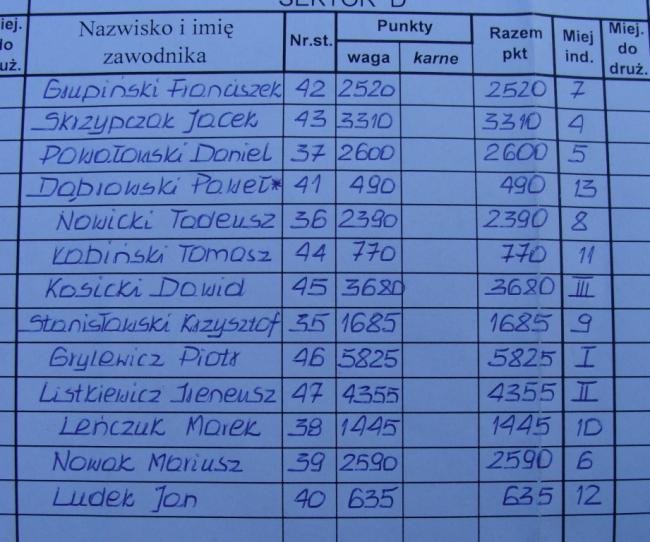 SEKTOR D
Miej. do druż. Nazwisko i imię zawodnika Nr.st. Punkty waga karne Razem pkt Miej ind. Miej. do druż.
Grupiński Franciszek 42 2520 2520 7
Skrzypczak Jacek 43 3310 3310 4
Powałowski Daniel 37 2600 2600 5
Dąbrowski Paweł* 41 490 490 13
Nowicki Tadeusz 36 2390 2390 8
Kabiński Tomasz 44 770 770 11
Kosicki Dawid 45 3680 3680 III
Stanisławski Krzysztof 35 1685 1685 9
Grylewicz Piotr 46 5825 5825 I
Listkiewicz Ireneusz 47 4355 4355 II
Leńczuk Marek 38 1445 1445 10
Nowak Mariusz 39 2590 2590 6
Ludek Jan 40 635 635 12